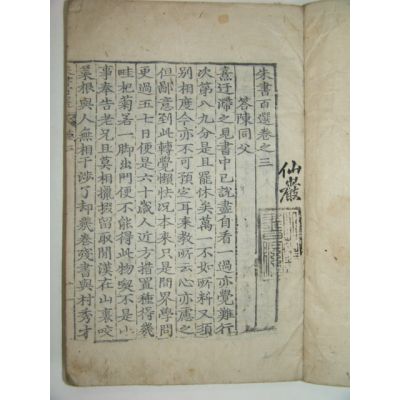 仙巖
朱書百選卷之三
答陳同父
熹迂滯之見書中已說盡自看一過亦覺難行
次第八九分是且罷休矣萬一不如所料又須
別相度今亦不可預定耳來教所云心亦慮之
但鄙意到此轉覺懶怯況本來只是間界學問
更過五七日便是六十歲人近方措置種得幾
畦杞菊若一脚出門便不能得此物喫不是小
事奉告老兄且莫相攛掇留取閒漢在山裏咬
菜根與人無相干涉了却幾卷殘書與村秀才